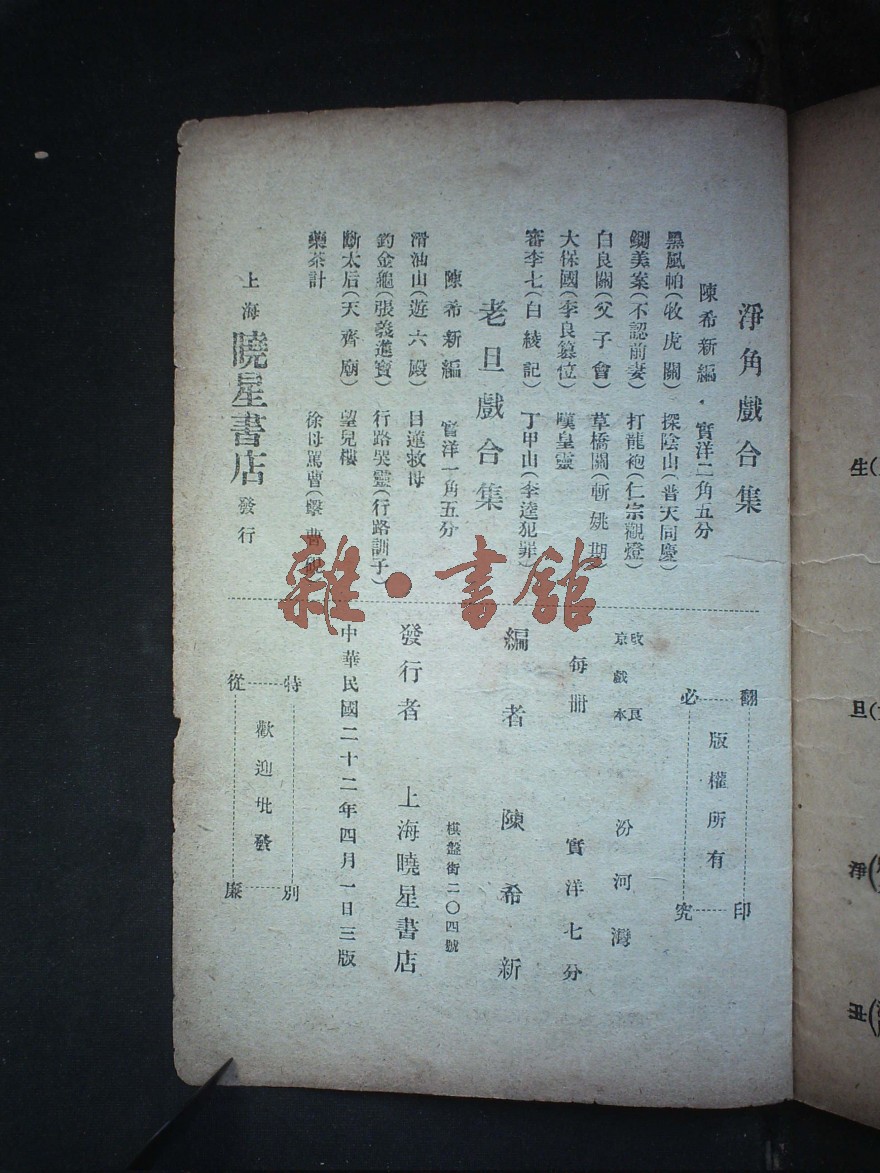 淨角戲合集
陳希新編・實洋二角五分
黑風帕(牧虎關) 探陰山(普天同慶)
鍘美案(不認前妻) 打龍袍(仁宗觀燈)
白良關(父子會) 草橋關(斬姚期)
大保國(李良篡位) 嘆皇靈
審李七(白綾記) 丁甲山(李逵犯罪)
老旦戲合集
陳希新編 實洋一角五分
滑油山(遊六殿) 目蓮救母
釣金龜(張義進寶) 行路哭靈(行路訓子)
斷太后(天齊廟) 望兒樓
藥茶計 徐母罵曹(擊曹硯)
上海曉星書店發行
翻印必究
版權所有
改良京戲本 汾河灣
每册 實洋七分
編者 陳希新
棋盤街二〇四號
發行者 上海曉星書店
中華民國二十二年四月一日三版
特別從廉
歡迎批發
雜・書館
生(
旦(
淨(